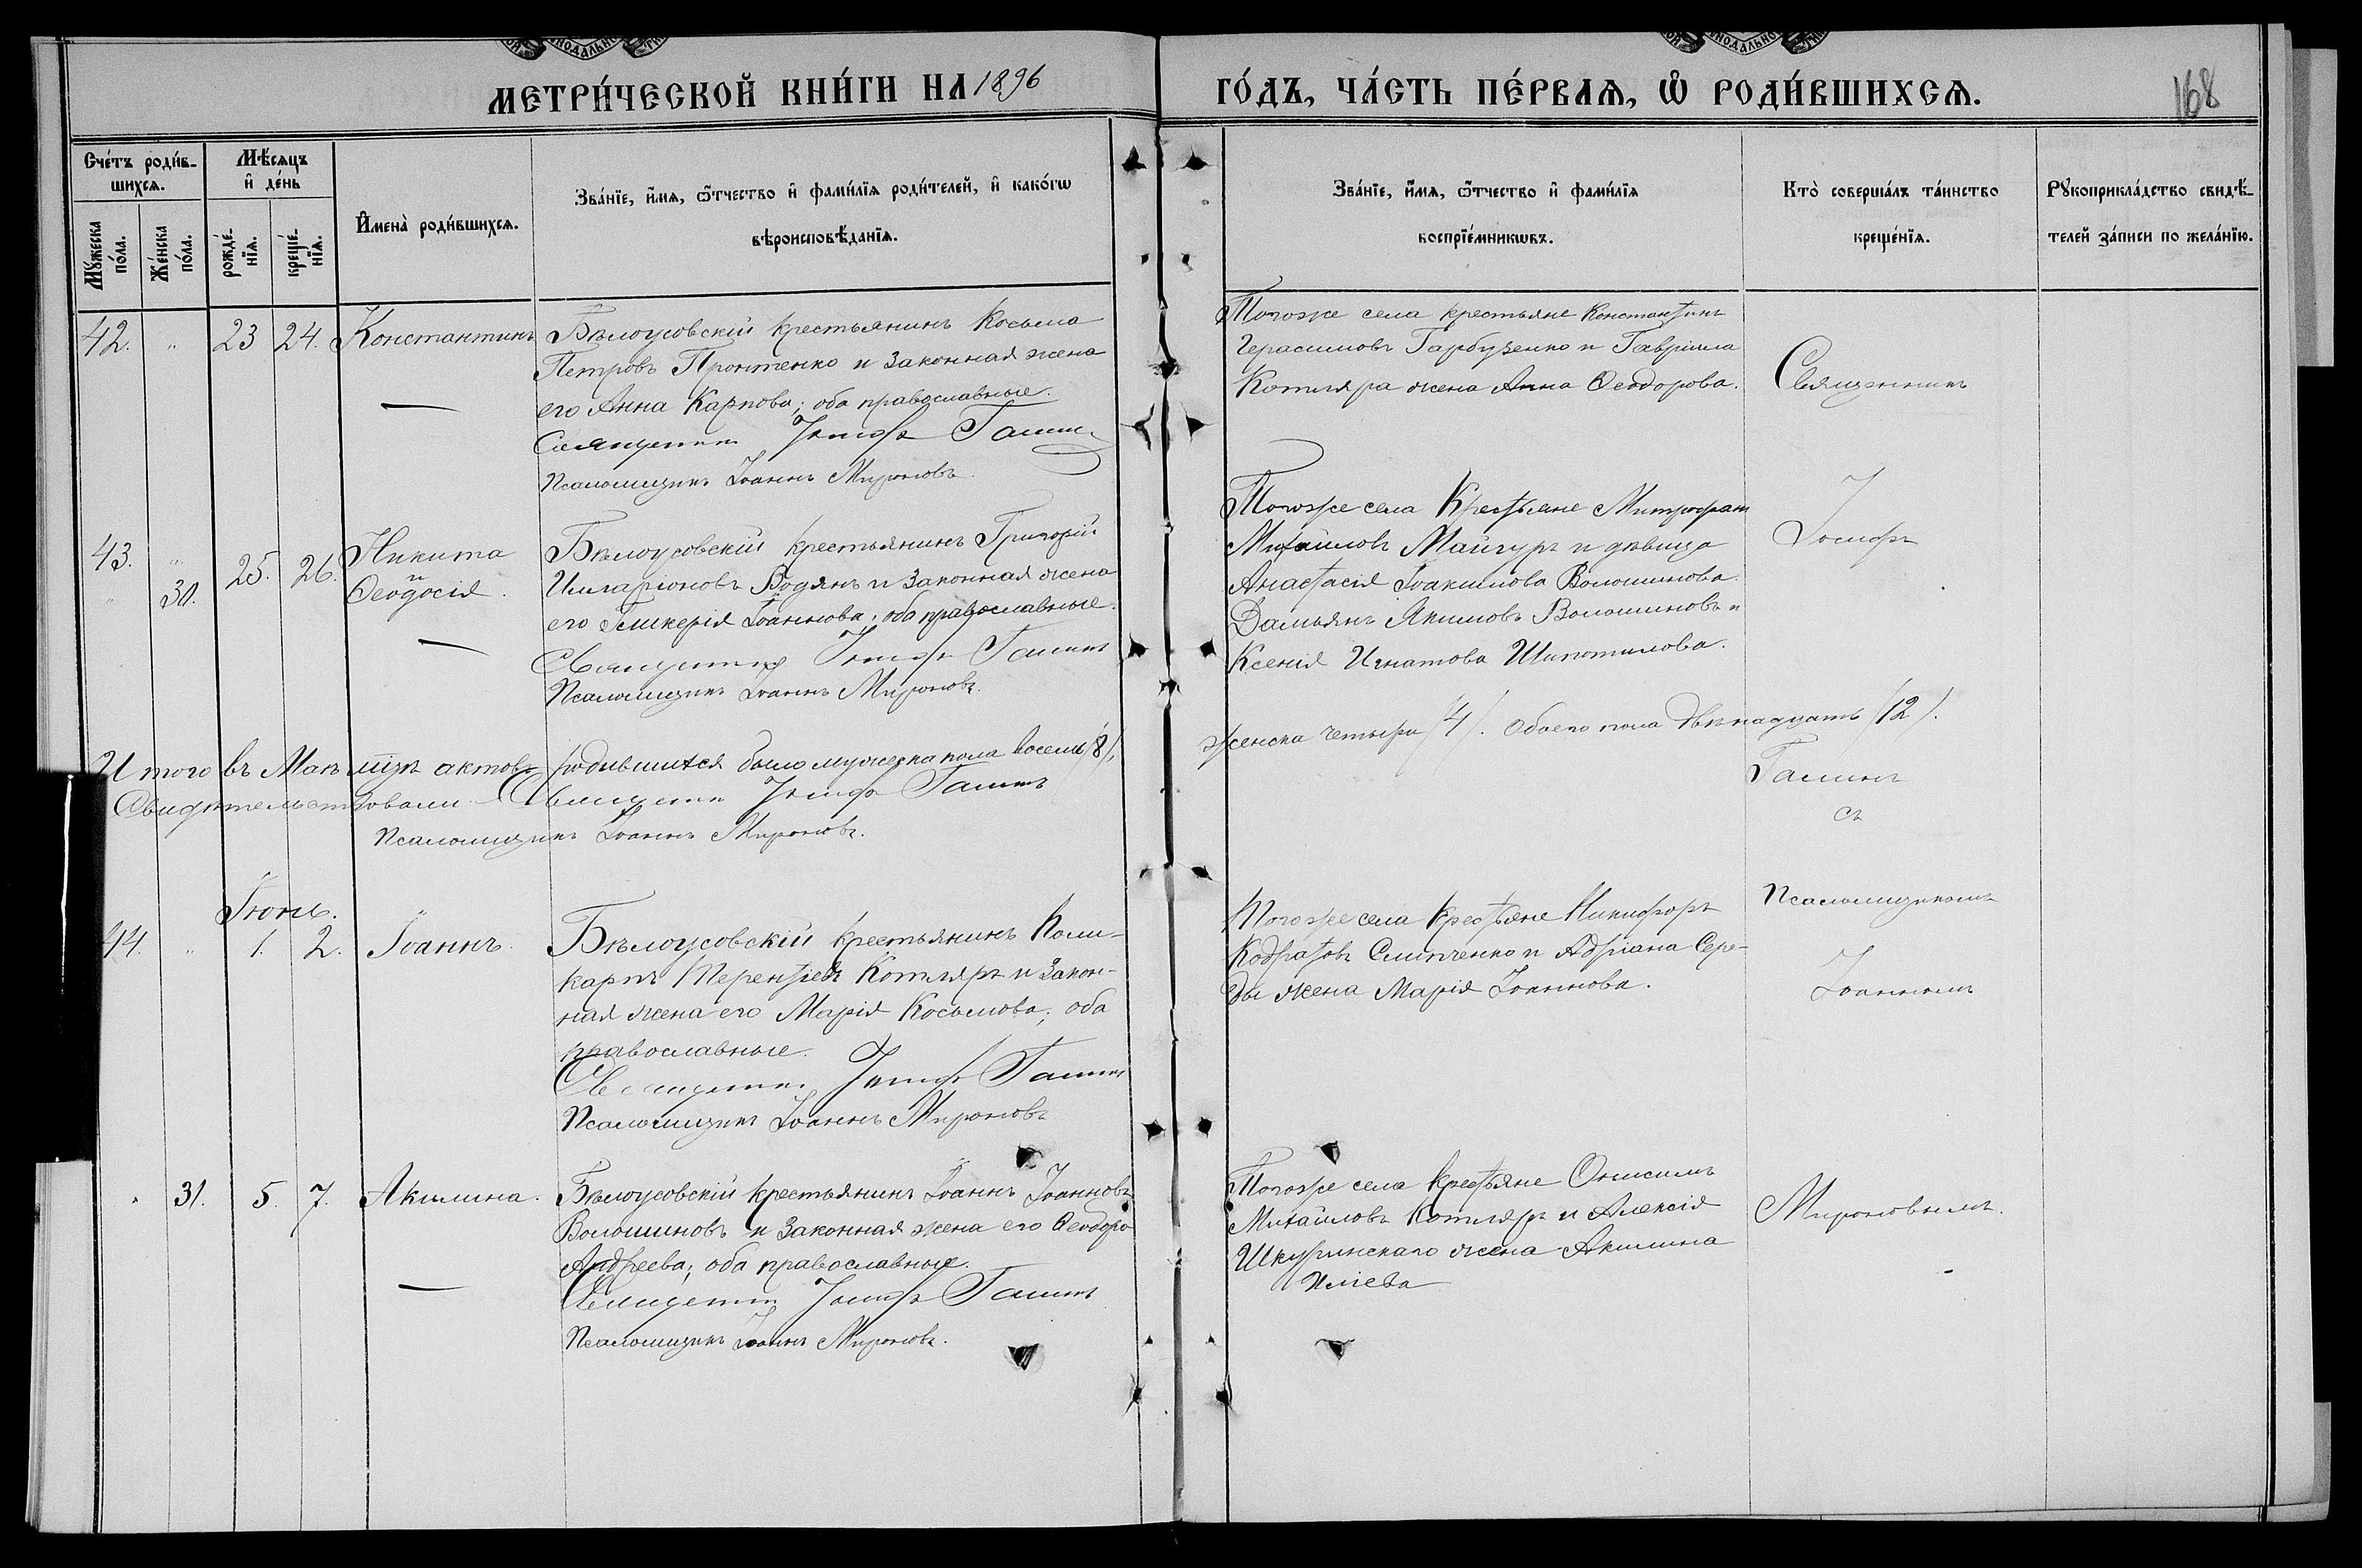 МЕТРИ́ЧЕСКОЙ КНИ́ГИ НА 1896
ГО́ДЪ, ЧА́СТЬ ПЕ́РВАѦ, Ѡ РОДИ́ВШИХСѦ.
168
Сче́тъ роди́в-
шихсѧ.
Мѣ́сѧцъ
и де́нь
Мꙋ́жеска
по́ла.
Же́нска
по́ла.
рожде́-
нїѧ.
креще́-
нїѧ.
Имена̀ роди́вшихсѧ.
Зва́нїе, и́мѧ, ѻ҆́тчество и фами́лїѧ роди́телей, и како́гѡ
вѣроисповѣ́данїѧ.
Зва́нїе, и́мѧ, ѻ҆́тчество и фами́лїѧ
воспрїе́мникѡвъ.
Кто̀ соверша́лъ та́инство
креще́нїѧ.
Рꙋкоприкла́дство свидѣ́-
телей за́писи по жела́нїю.
42. " 23 24. Константинъ
Бѣлоусовскій крестьянинъ Косьма
Петровъ Пронтенко и законная жена
его Анна Карпова; оба православные.
Священникъ Іосифъ Галин
Псаломщикъ Іоаннъ Мироновъ.
Тогоже села крестьяне Константинъ
Герасимовъ Гарбузенко и Гавріила
Котляра жена Анна Ѳеодорова.
Священникъ
43. " 25. 26. Никита
" 30. и Ѳеодосія.
Бѣлоусовскій крестьянинъ Григорій
Иларіоновъ Водянъ и законная жена
его Гликерія Іоаннова; оба православные.
Священникъ Іосифъ Галинъ
Псаломщикъ Іоаннъ Мироновъ.
Тогоже села Крестьяне Митрофанъ
Михаиловъ Майгуръ и дѣвица
Анастасія Іоакимова Волошинова.
Дамьянъ Якимовъ Волошиновъ и
Ксенія Игнатова Шипотилова.
Іосифъ
Итого въ Маѣ мцѣ актовъ родившихся было мужеска пола восемь (8),
женска четыри (4). Обоего пола двѣнадцать (12).
Свидѣтельствовали: Священникъ Іосифъ Галинъ
Псаломщикъ Іоаннъ Мироновъ.
Галинъ
съ
Іюнь.
44. " 1. 2. Іоаннъ.
Бѣлоусовскій крестьянинъ Поли-
карпъ Терентіевъ Котляръ и закон-
ная жена его Марія Косьмова; оба
православные.
Священникъ Іосифъ Галинъ
Псаломщикъ Іоаннъ Мироновъ
Тогоже села крестьяне Никифоръ
Кодратовъ Слипченко и Адріана Сере-
ды жена Марія Іоаннова.
Псаломщикомъ
Іоанномъ
" 31. 5. 7. Акилина.
Бѣлоусовскій крестьянинъ Іоаннъ Іоанновъ
Волошиновъ и законная жена его Ѳеодора
Андреева; оба православные.
Священникъ Іосифъ Галинъ
Псаломщикъ Іоаннъ Мироновъ.
Тогоже села крестьяне Онисимъ
Михаиловъ Котляръ и Алексія
Шкуринскаго жена Акилина
Иліева
Мироновымъ.